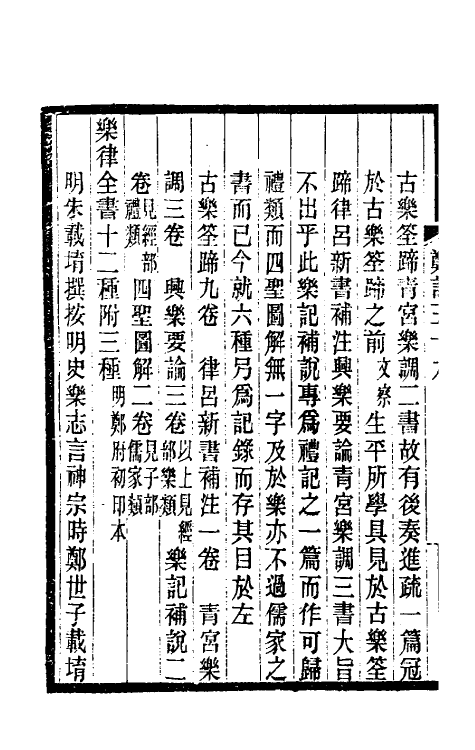 古樂筌蹄青宮樂調二書故有後奏進疏一篇冠
於古樂筌蹄之前文察生平所學具見於古樂筌
蹄律呂新書補注興樂要論青宮樂調三書大旨
不出乎此樂記補說專爲禮記之一篇而作可歸
禮類而四聖圖解無一字及於樂亦不過儒家之
書而已今就六種另爲記錄而存其目於左
古樂筌蹄九卷　律呂新書補注一卷　青宮樂
調三卷　興樂要論三卷以上見經部樂類　樂記補說二
卷見經部禮類　四聖圖解二卷見子部儒家類
樂律全書十二種附三種明鄭府初印本
明朱載堉撰按明史樂志言神宗時鄭世子載堉